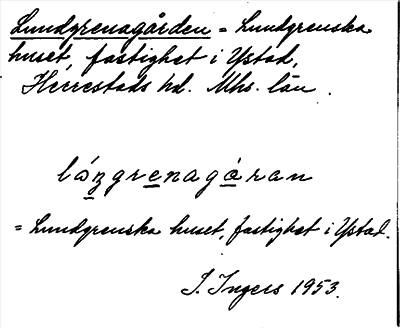 Lundgrenagården = Lundgrenska
huset, fastighet i Ystad,
Herrestads hd. Mhs. län.
lo̱nzgre̱nagå̱ran
= Lundgrenska huset, fastighet i Ystad.
I. Ingers 1953.